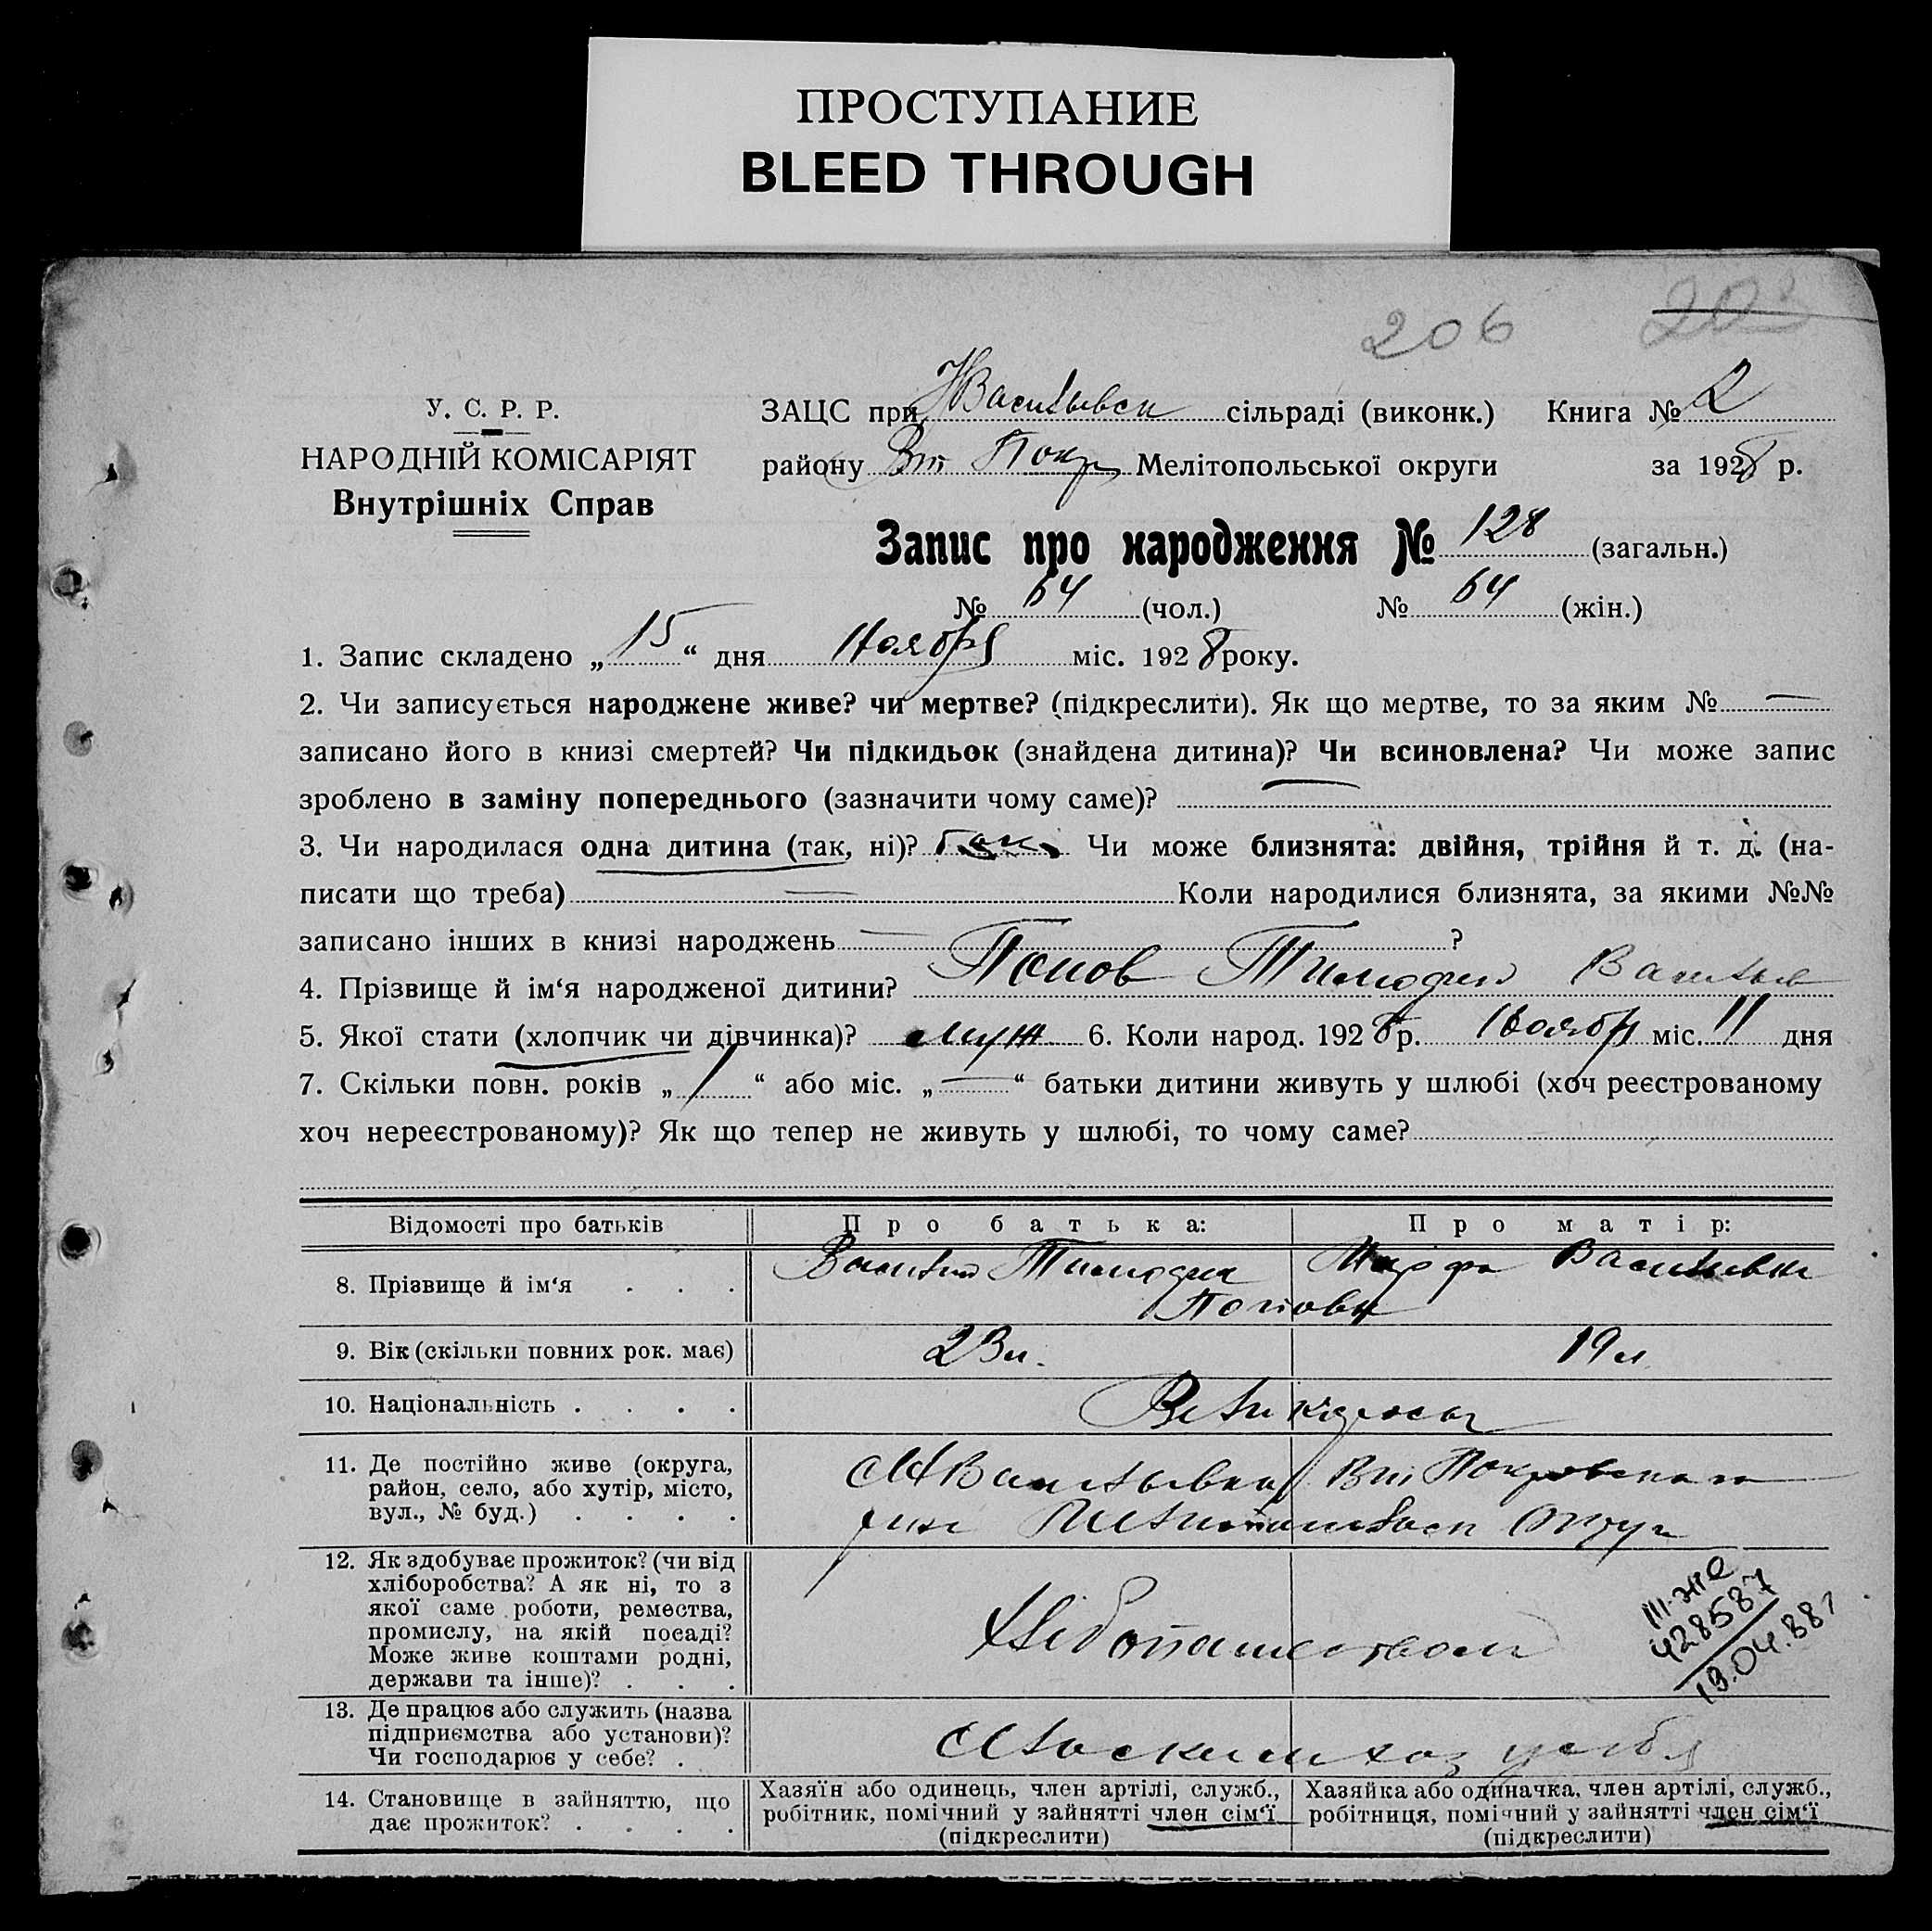 ПРОСТУПАНИЕ
BLEED THROUGH
206
У. С. Р. Р.
НАРОДНІЙ КОМІСАРІЯТ
Внутрішніх Справ
ЗАЦС при НВасильевск сільраді (виконк.) Книга № 2
району Вт Покр Мелітопольської округи за 1928 р.
Запис про народження № 128 (загальн.)
№ 64 (чол.) № 64 (жін.)
1. Запис складено „15“ дня Ноября міс. 1928 року.
2. Чи записується народжене живе? чи мертве? (підкреслити). Як що мертве, то за яким № —
записано його в книзі смертей? Чи підкидьок (знайдена дитина)? Чи всиновлена? Чи може запис
зроблено в заміну попереднього (зазначити чому саме)? —
3. Чи народилася одна дитина (так, ні)? Так Чи може близнята: двійня, трійня й т. д. (на-
писати що треба) — Коли народилися близнята, за якими №№
записано інших в книзі народжень — ?
4. Прізвище й ім‘я народженої дитини? Попов Тимофей Васильев
5. Якої стати (хлопчик чи дівчинка)? муж 6. Коли народ. 1928 р. Ноябр міс. 11 дня
7. Скільки повн. років „1“ або міс. „—“ батьки дитини живуть у шлюбі (хоч реєстрованому
хоч нереєстрованому)? Як що тепер не живуть у шлюбі, то чому саме?
Відомості про батьків Про батька: Про матір:
8. Прізвище й ім‘я . . . Василий Тимофея Марфа Васильевна
Поповы
9. Вік (скільки повних рок. має) 23 л. 19 л
10. Національність . . . . Великоросы
11. Де постійно живе (округа,
район, село, або хутір, місто,
вул., № буд.) . . . .
НВасильевки Вт Покровского
рна Мелитопольск Округ
12. Як здобуває прожиток? (чи від
хліборобства? А як ні, то з
якої саме роботи, ремества,
промислу, на якій посаді?
Може живе коштами родні,
держави та інше)? . . .
Хлібопашеством
III-ЖС
428587
19.04.88г
13. Де працює або служить (назва
підприємства або установи)?
Чи господарює у себе? .
14. Становище в зайняттю, що
дає прожиток? . . . .
Хазяїн або одинець, член артілі, служб.,
робітник, помічний у зайнятті член сім‘ї
(підкреслити)
Хазяйка або одиначка, член артілі, служб.,
робітниця, помічний у зайнятті член сім‘ї
(підкреслити)